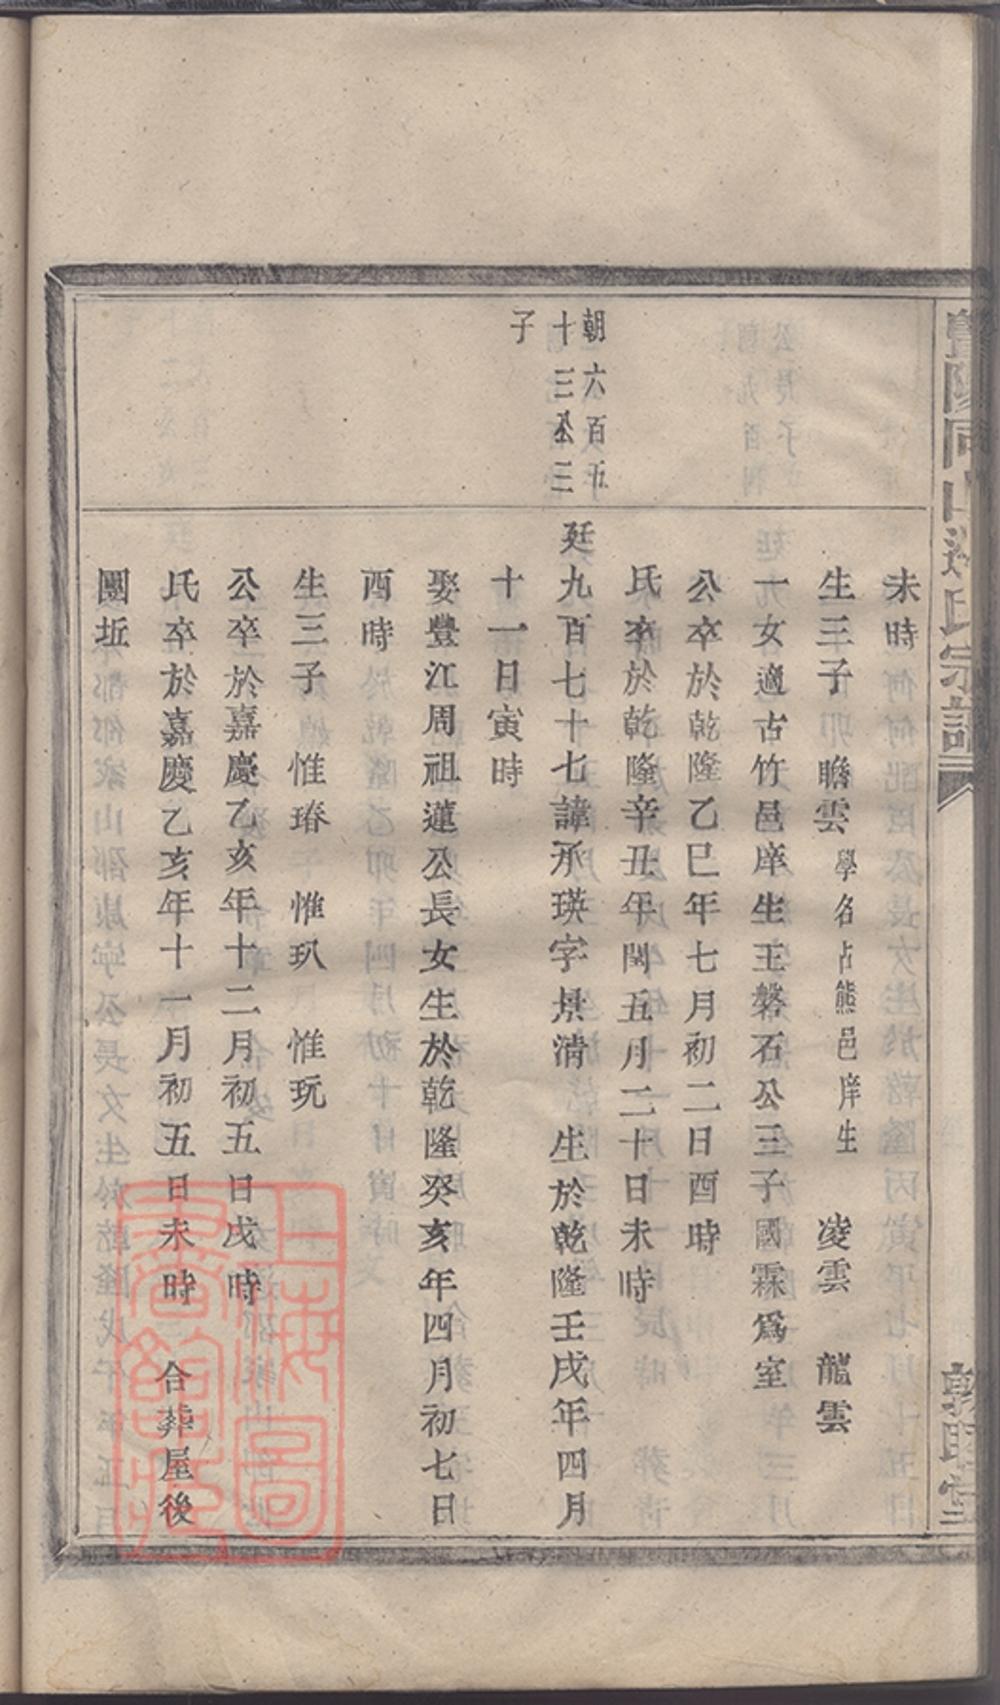 暨陽同山邊氏宗譜
敦睦堂
未時
生三子　瞻雲 學名占熊邑庠生　凌雲　龍雲
一女適古竹邑庠生王磐石公三子國霖爲室
公卒於乾隆乙巳年七月初二日酉時
氏卒於乾隆辛丑年閏五月二十日未時
朝六百五
十三公三
子
廷九百七十七諱承瑛字景清　生於乾隆壬戌年四月
十一日寅時
娶豐江周祖蓮公長女生於乾隆癸亥年四月初七日
酉時
生三子　惟瑃　惟玐　惟玩
公卒於嘉慶乙亥年十二月初五日戌時
氏卒於嘉慶乙亥年十一月初五日未時　合葬屋後
團坵
上海圖
書館藏